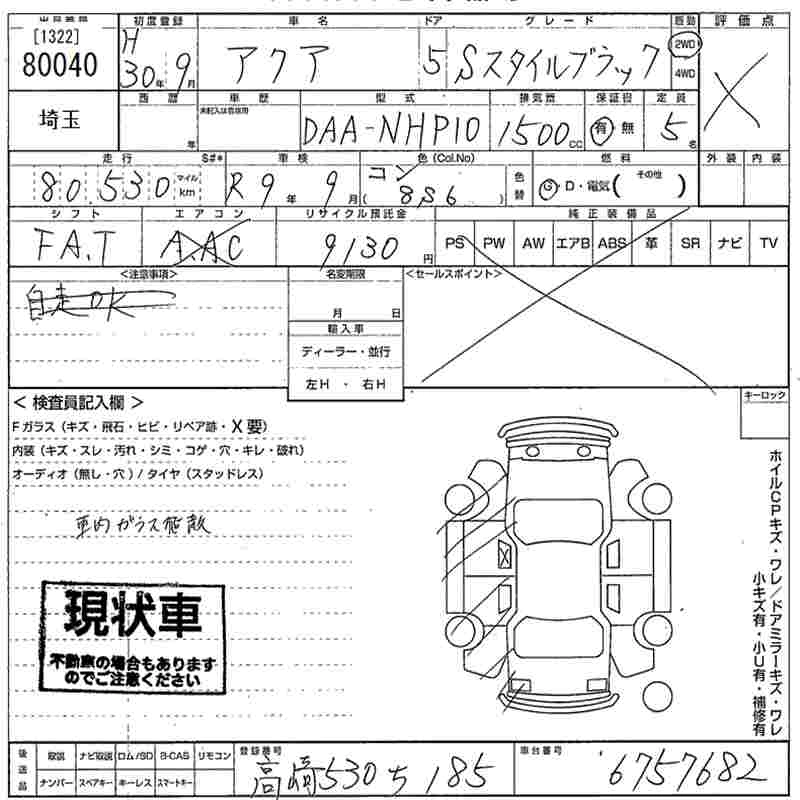 出品番号 初度登録 車名 ドア グレード 駆動 評価点
[1322] H 2WD
80040 30年9月 アクア 5 Sスタイルブラック 4WD X
西歴 車歴 型式 排気量 保証書 定員
未記入は自家用
埼玉 年 DAA-NHP10 1500cc 有 無 5名
走行 S#* 車検 色(Col.No) 燃料 外装 内装
コン 色替 その他
80,530 マイル km R9年9月 ( 8S6 ) G・D・電気( )
シフト エアコン リサイクル預託金 純正装備品
FA.T A.AC 9130円 PS PW AW エアB ABS 革 SR ナビ TV
<注意事項> 名変期限 <セールスポイント>
自走OK
月 日
輸入車
ディーラー・並行
左H ・ 右H
< 検査員記入欄 > キーロック
Fガラス(キズ・飛石・ヒビ・リペア跡・X要)
内装(キズ・スレ・汚れ・シミ・コゲ・穴・キレ・破れ)
オーディオ(無し・穴)/タイヤ(スタッドレス)
車内ガラス飛散
現状車
不動車の場合もあります
のでご注意ください
ホイルCPキズ・ワレ/ドアミラーキズ・ワレ
小キズ有・小U有・補修有
後送品 取説 ナビ取説 ロム/SD B-CAS リモコン 登録番号 車台番号
ナンバー スペアキー キーレス スマートキー 高崎530ち185 6757682